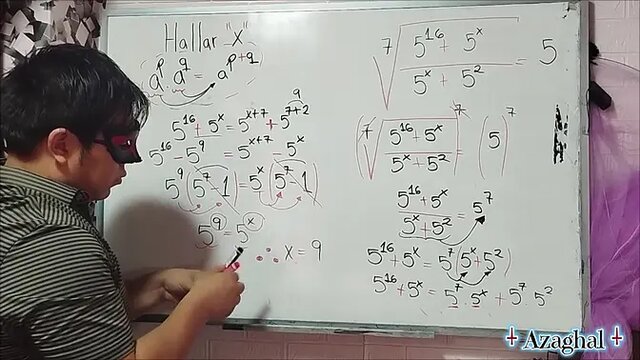 Hallar "x"
a^p a^q = a^{p+q}
5^16 + 5^x = 5^{x+7} + 5^{7+2} 9
5^16 - 5^9 = 5^{x+7} - 5^x
5^9 (5^7 - 1) = 5^x (5^7 - 1)
5^9 = 5^x
∴ x = 9
⁷√((5^16 + 5^x)/(5^x + 5^2)) = 5
(⁷√((5^16 + 5^x)/(5^x + 5^2)))^7 = (5)^7
(5^16 + 5^x)/(5^x + 5^2) = 5^7
5^16 + 5^x = 5^7 (5^x + 5^2)
5^16 + 5^x = 5^7 · 5^x + 5^7 · 5^2
Azaghal